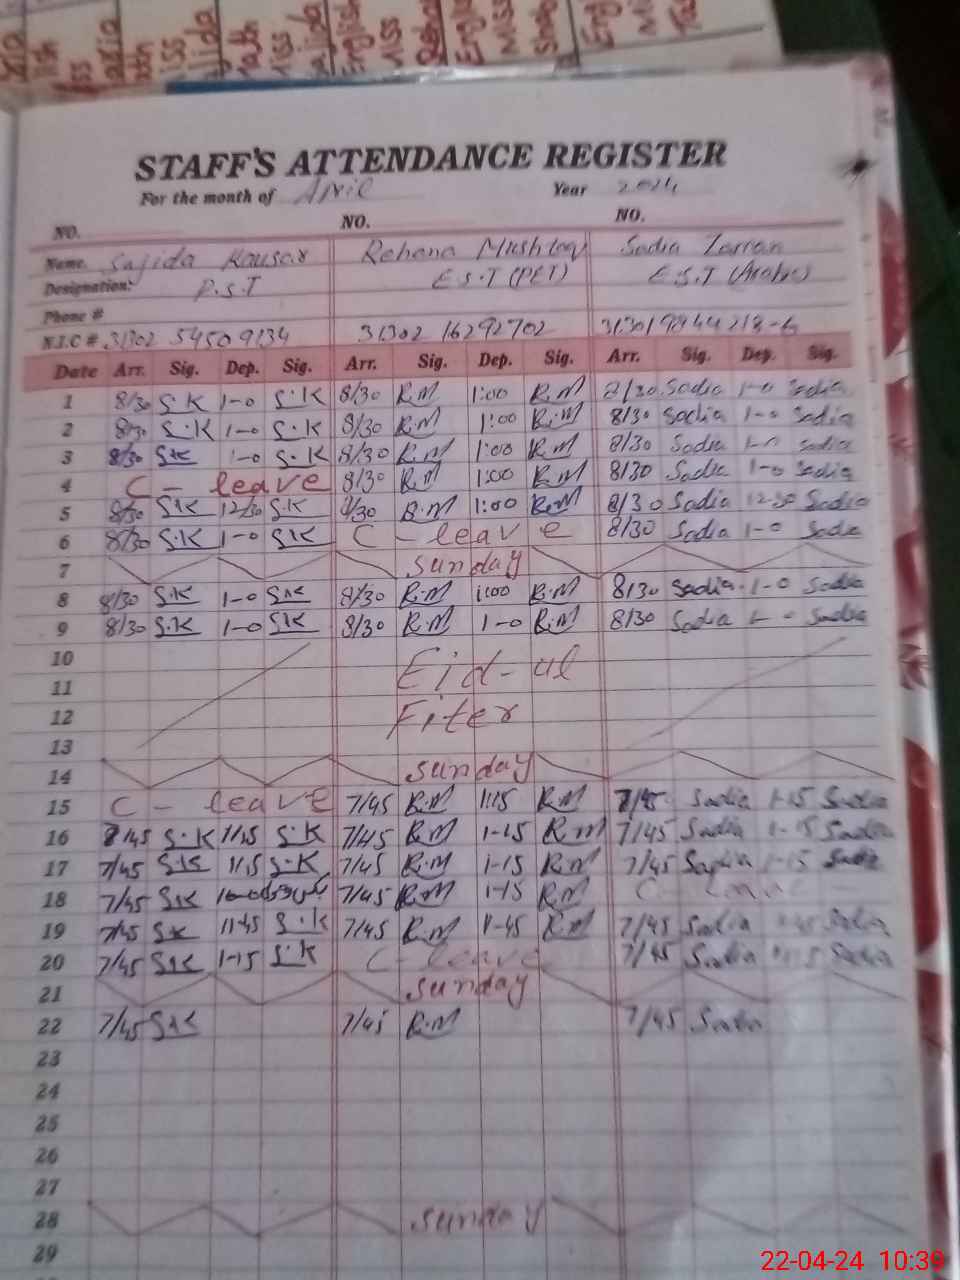 STAFF'S ATTENDANCE REGISTER
For the month of April Year 2024
NO. NO. NO.
Name. Sajida Kausar Rehana Mushtaq Sadia Zaman
Designation: P.S.T E.S.T (PET) E.S.T (Arabic)
Phone #
N.I.C # 31302 5450 9134 31302 16292702
Date Arr. Sig. Dep. Sig. Arr. Sig. Dep. Sig. Arr. Sig. Dep. Sig.
1 8/30 S.K 1-0 S.K 8/30 R.M 1:00 R.M 8/30 Sadia 1-0 Sadia
2 8/30 S.K 1-0 S.K 8/30 R.M 1:00 R.M 8/30 Sadia 1-0 Sadia
3 8/30 SK 1-0 S.K 8/30 R.M 1:00 R.M 8/30 Sadia 1-0 Sadia
4 C - leave 8/30 R.M 1:00 R.M 8/30 Sadia 1-0 Sadia
5 8/30 S.K 12/30 S.K 8/30 R.M 1:00 R.M 8/30 Sadia 12-30 Sadia
6 8/30 S.K 1-0 SK C - leave 8/30 Sadia 1-0 Sadia
7 Sunday
8 8/30 S.K 1-0 S.K 8/30 R.M 1:00 R.M 8/30 Sadia 1-0 Sadia
9 8/30 S.K 1-0 SK 8/30 R.M 1-0 R.M 8/30 Sadia Sadia
10 Eid-ul
11
12 Fiter
13
14 Sunday
15 C - leave 7/45 R.M 1:15 R.M 7/45 Sadia 1-15 Sadia
16 7/45 S.K 1/15 S.K 7/45 R.M 1-15 R.M 7/45 Sadia 1-15 Sadia
17 7/45 S.K 1/15 S.K 7/45 R.M 1-15 R.M 7/45 Sadia 1-15 Sadia
18 7/45 SK 7/45 R.M 1-15 R.M C - leave
19 7/45 SK 11-45 S.K 7/45 R.M 11-45 R.M 7/45 Sadia 11-45 Sadia
20 7/45 S.K 1-15 S.K C - leave 7/45 Sadia 1-15 Sadia
21 Sunday
22 7/45 S.K 7/45 R.M 7/45 Sadia
23
24
25
26
27
28 Sunday
29
22-04-24 10:39